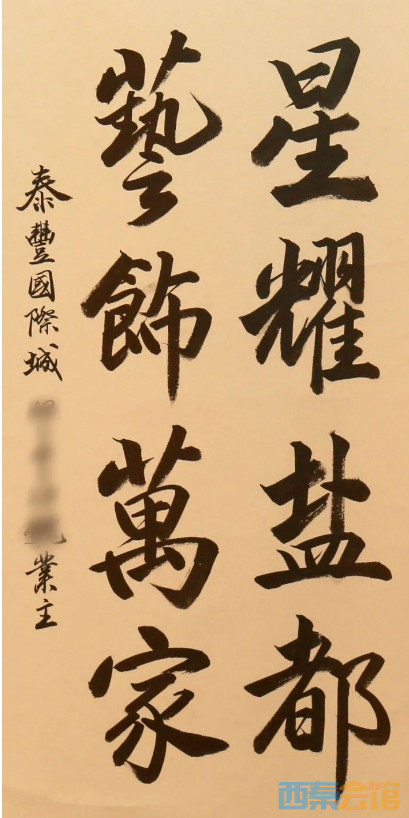 星耀盐都
藝飾萬家
泰豐國際城
業主
西秦会馆